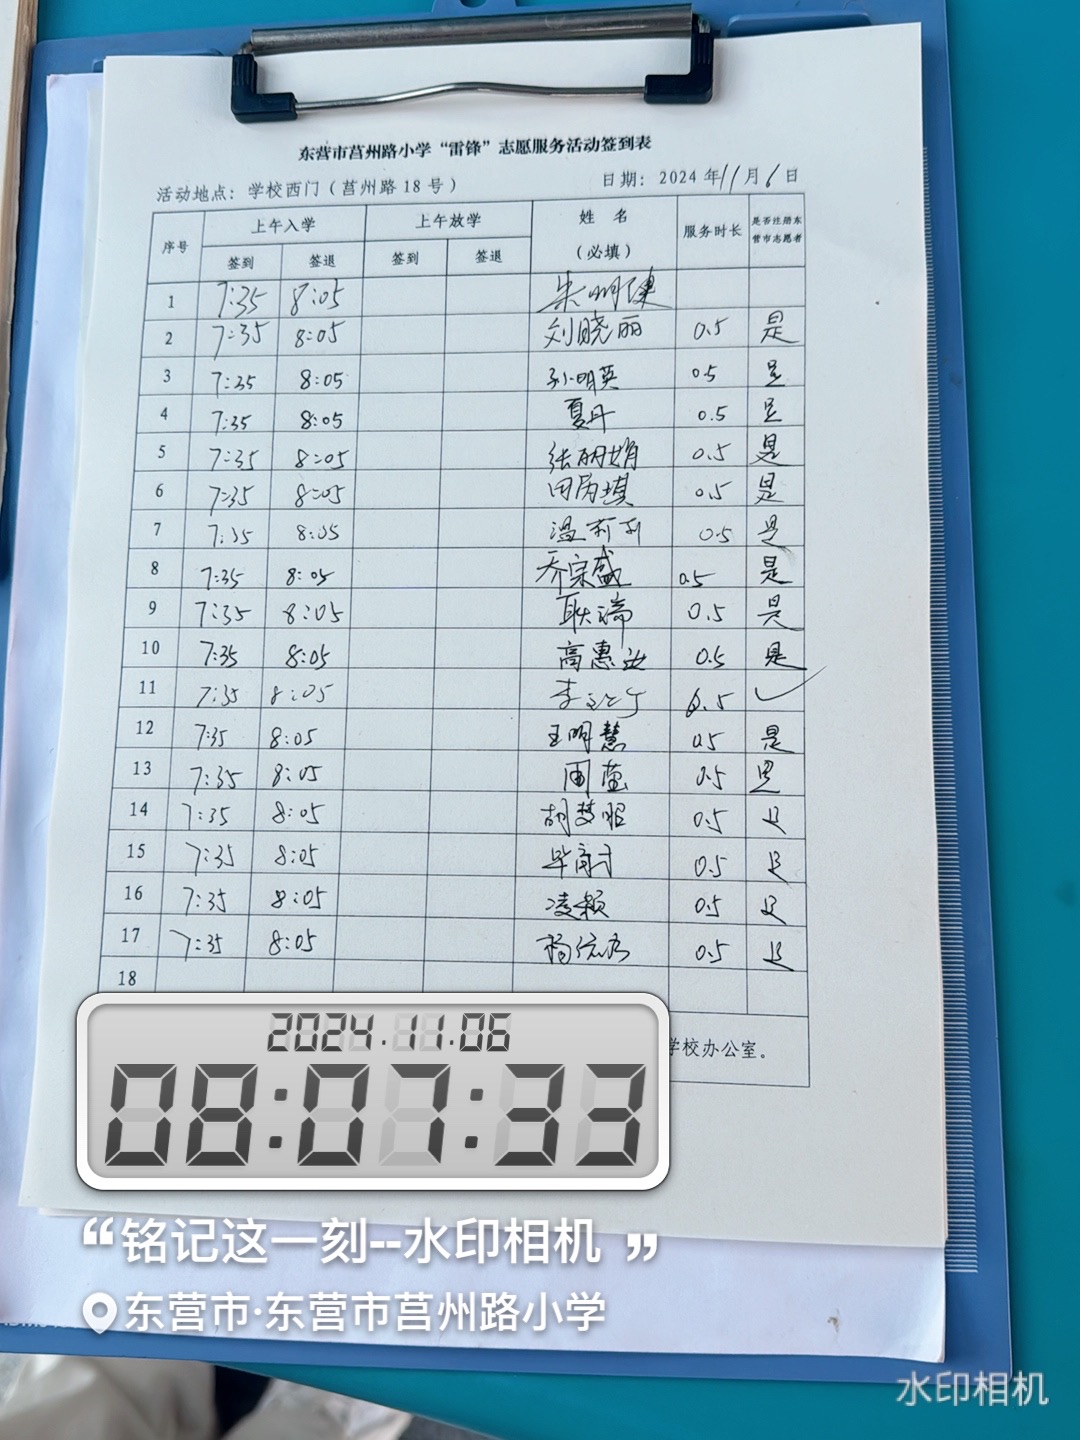 东营市莒州路小学“雷锋”志愿服务活动签到表
活动地点：学校西门（莒州路18号） 日期：2024年11月6日
序号 上午入学 上午放学 姓名（必填） 服务时长 是否注册东营市志愿者
签到 签退 签到 签退
1 7:35 8:05 朱明健
2 7:35 8:05 刘晓丽 0.5 是
3 7:35 8:05 孙明英 0.5 是
4 7:35 8:05 夏丹 0.5 是
5 7:35 8:05 张丽娟 0.5 是
6 7:35 8:05 田 琪 0.5 是
7 7:35 8:05 温莉莉 0.5 是
8 7:35 8:05 乔宗盛 0.5 是
9 7:35 8:05 耿瑞 0.5 是
10 7:35 8:05 高惠 0.5 是
11 7:35 8:05 李 0.5 ✓
12 7:35 8:05 王明慧 0.5 是
13 7:35 8:05 周莹 0.5 是
14 7:35 8:05 胡梦 0.5 是
15 7:35 8:05 毕 0.5 是
16 7:35 8:05 凌颖 0.5 是
17 7:35 8:05 杨 0.5 是
18
学校办公室。
2024.11.06
08:07:33
“铭记这一刻--水印相机”
东营市·东营市莒州路小学
水印相机